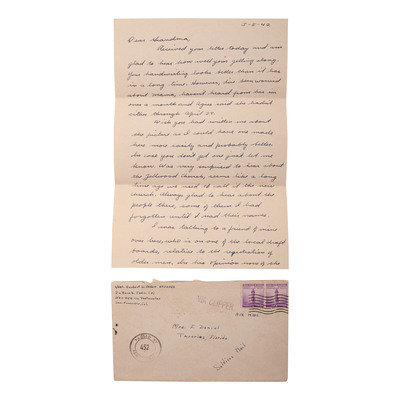 5-5-42
Dear Grandma,
Received your letter today and am
glad to hear how well you're getting along.
Your handwriting looks better than it has
in a long time. However, I'm worried
about mama, haven't heard from her in
over a month and Agnes said she hadn't
either through April 24.
Wish you had written me about
the picture as I could have one made
here more easily and probably better.
In case you don't get one just let me
know. Was very surprised to hear about
the Church, seems like a long
time ago we used to call it the new
church. Always glad to hear about the
people there, some of them I had
forgotten until I read their names.
I was talking to a friend of mine
over here, who is on one of the local draft
boards, relative to the registration of
older men, and his opinion was of the
AIR CLIPPER
AIR MAIL
San Francisco, Cal.
452
Mrs. E. Daniel
Tavares, Florida